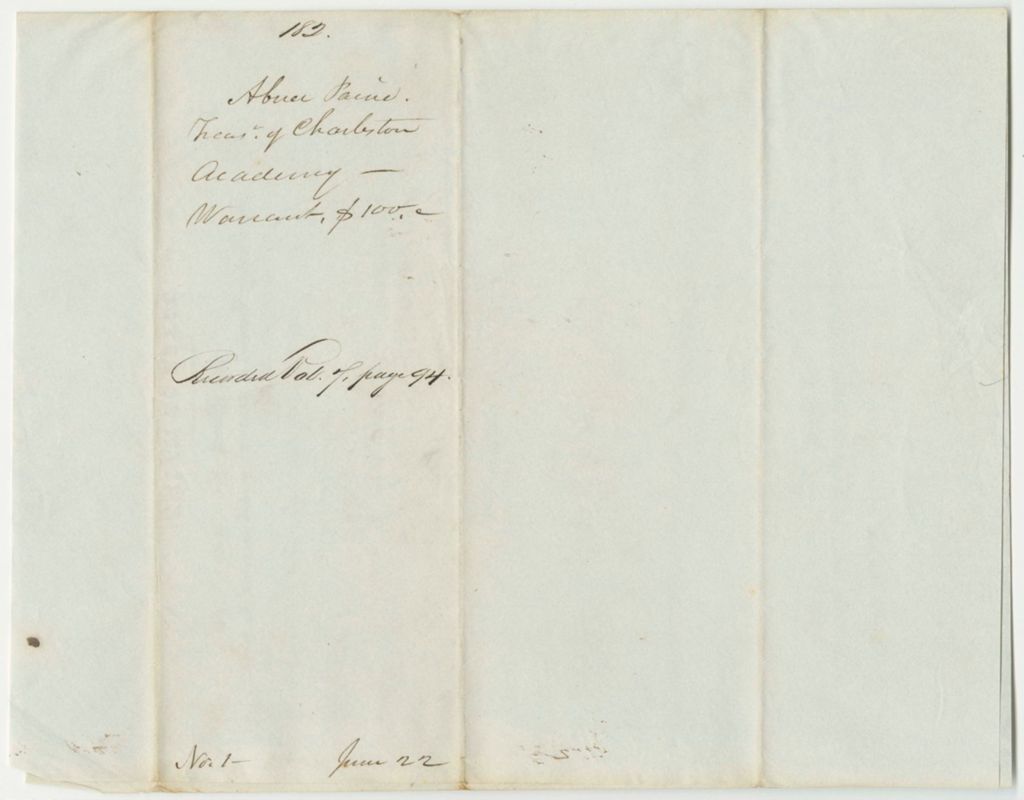 182.
Abner Paine.
Treasr. of Charleston
Academy —
Warrant, $100.
Recorded Vol. 7, page 94.
No. 1— June 22